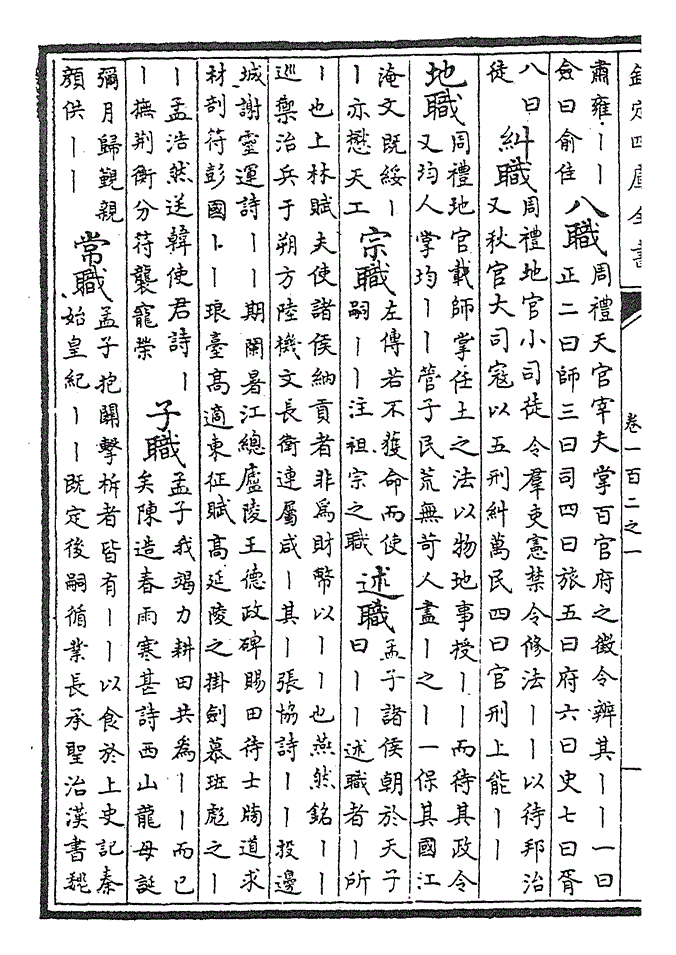 欽定四庫全書
卷一百二之一
肅雍丨丨
僉曰俞往
八職
周禮天官宰夫掌百官府之徵令辨其丨丨一曰
正二曰師三曰司四曰旅五曰府六曰史七曰胥
八曰
徒
糾職
周禮地官小司徒令羣吏憲禁令修法丨丨以待邦治
又秋官大司寇以五刑糾萬民四曰官刑上能丨丨
地職
周禮地官載師掌任土之法以物地事授丨丨而待其政令
又均人掌均丨丨管子民荒無苛人盡丨之丨一保其國江
淹文既綏丨
丨亦懋天工
宗職
左傳若不獲命而使
嗣丨丨注祖宗之職
述職
孟子諸侯朝於天子
曰丨丨述職者丨所
丨也上林賦夫使諸侯納貢者非為財幣以丨丨也燕然銘丨丨
巡禦治兵于朔方陸機文長衛連屬咸丨其丨張協詩丨丨投邊
城謝靈運詩丨丨期闌暑江總廬陵王德政碑賜田待士牖道求
材剖符彭國卜丨琅臺高適東征賦高延陵之掛劍慕班彪之丨
丨孟浩然送韓使君詩丨
丨撫荆衡分符襲寵榮
子職
孟子我竭力耕田共為丨丨而已
矣陳造春雨寒甚詩西山龍母誕
彌月歸覲親
顏供丨丨
常職
孟子抱關擊柝者皆有丨丨以食於上史記秦
始皇紀丨丨既定後嗣循業長承聖治漢書魏